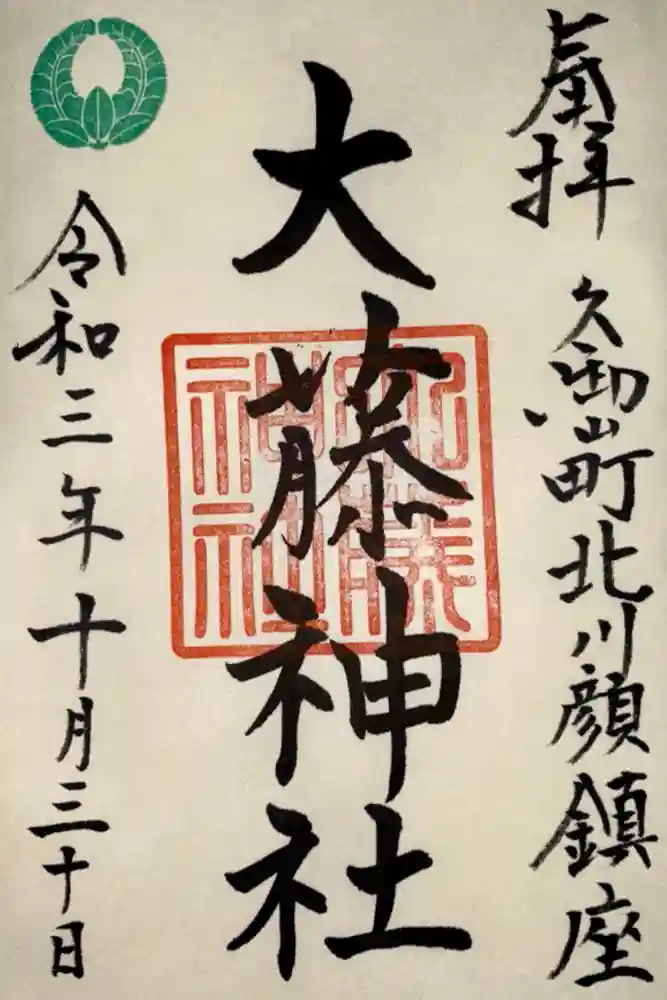 拝
久御山町北川顔鎮座
大藤神社
大藤
神社
令和三年十月三十日